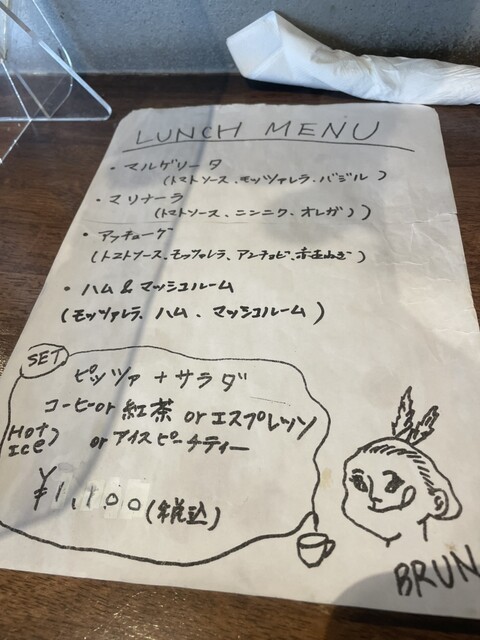 LUNCH MENU
・マルゲリータ
(トマトソース、モッツァレラ、バジル)
・マリナーラ
(トマトソース、ニンニク、オレガノ)
・アッチューゲ
(トマトソース、モッツァレラ、アンチョビ、赤玉ねぎ)
・ハム&マッシュルーム
(モッツァレラ、ハム、マッシュルーム)
SET
ピッツァ+サラダ
コーヒーor 紅茶 or エスプレッソ
Hot
Ice) or アイスピーチティー
¥1,100(税込)
BRUN